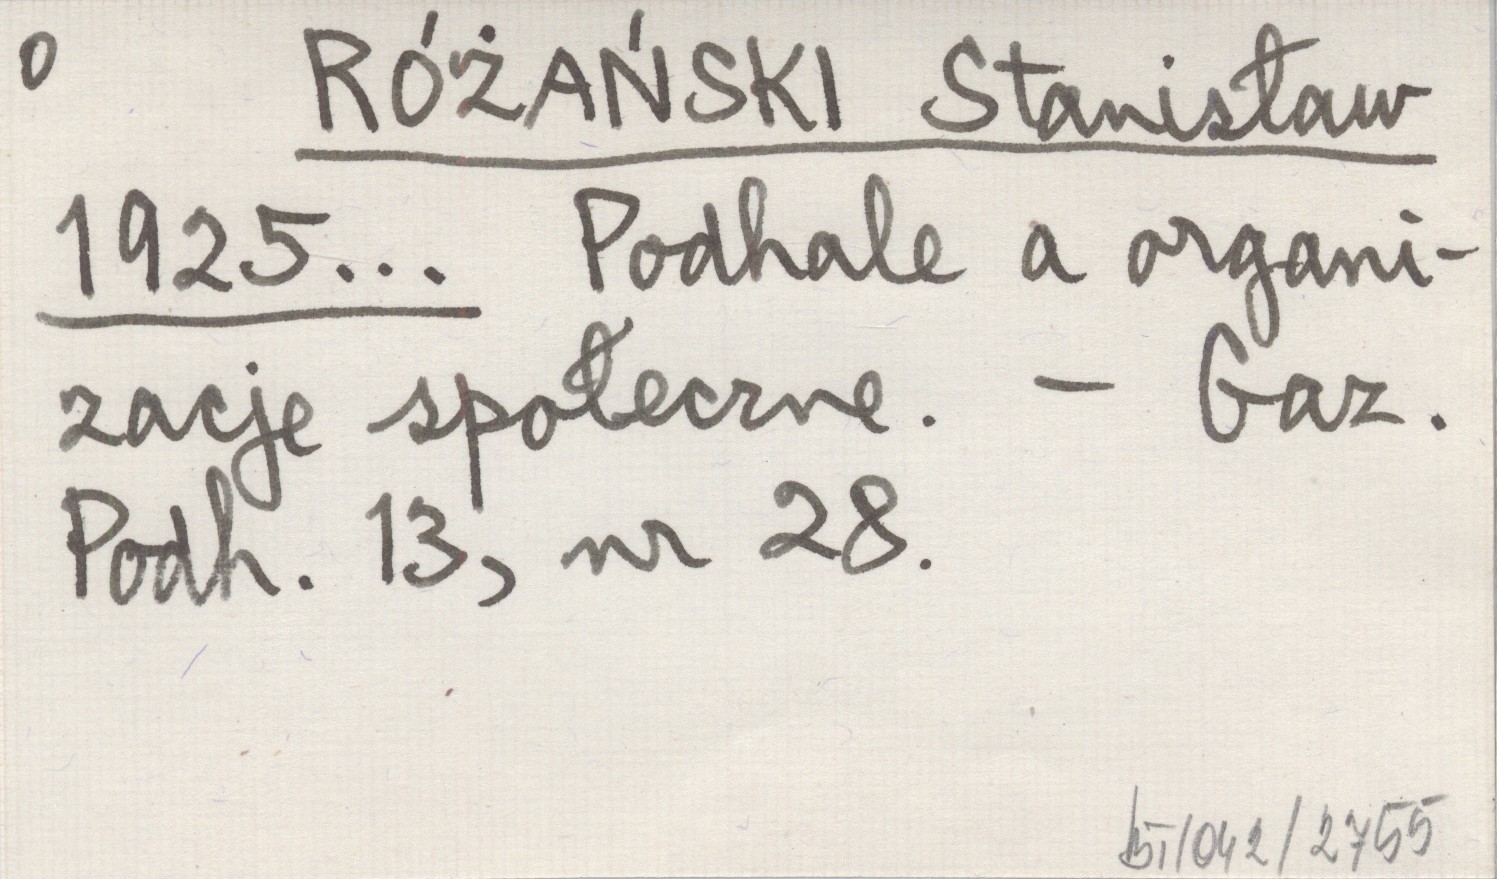 0 RÓŻAŃSKI Stanisław
1925... Podhale a organi-
zacje społeczne. - Gaz.
Podh. 13, nr 28.
/042/2755